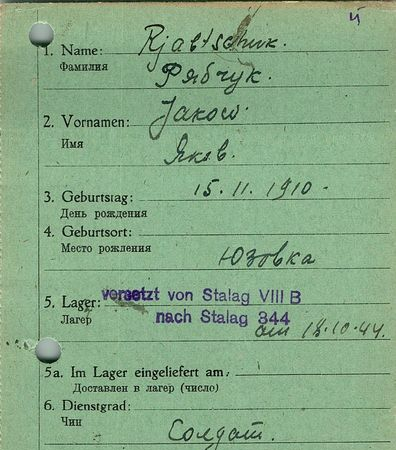 й
1. Name: Rjabtschuk.
Фамилия Рябчук.
2. Vornamen: Jakow.
Имя Яков.
3. Geburtstag: 15.11.1910.
День рождения
4. Geburtsort:
Место рождения Юзовка
5. Lager: versetzt von Stalag VIII B
Лагер nach Stalag 344
am 18.10.44.
5a. Im Lager eingeliefert am:
Доставлен в лагер (число)
6. Dienstgrad:
Чин Солдат.